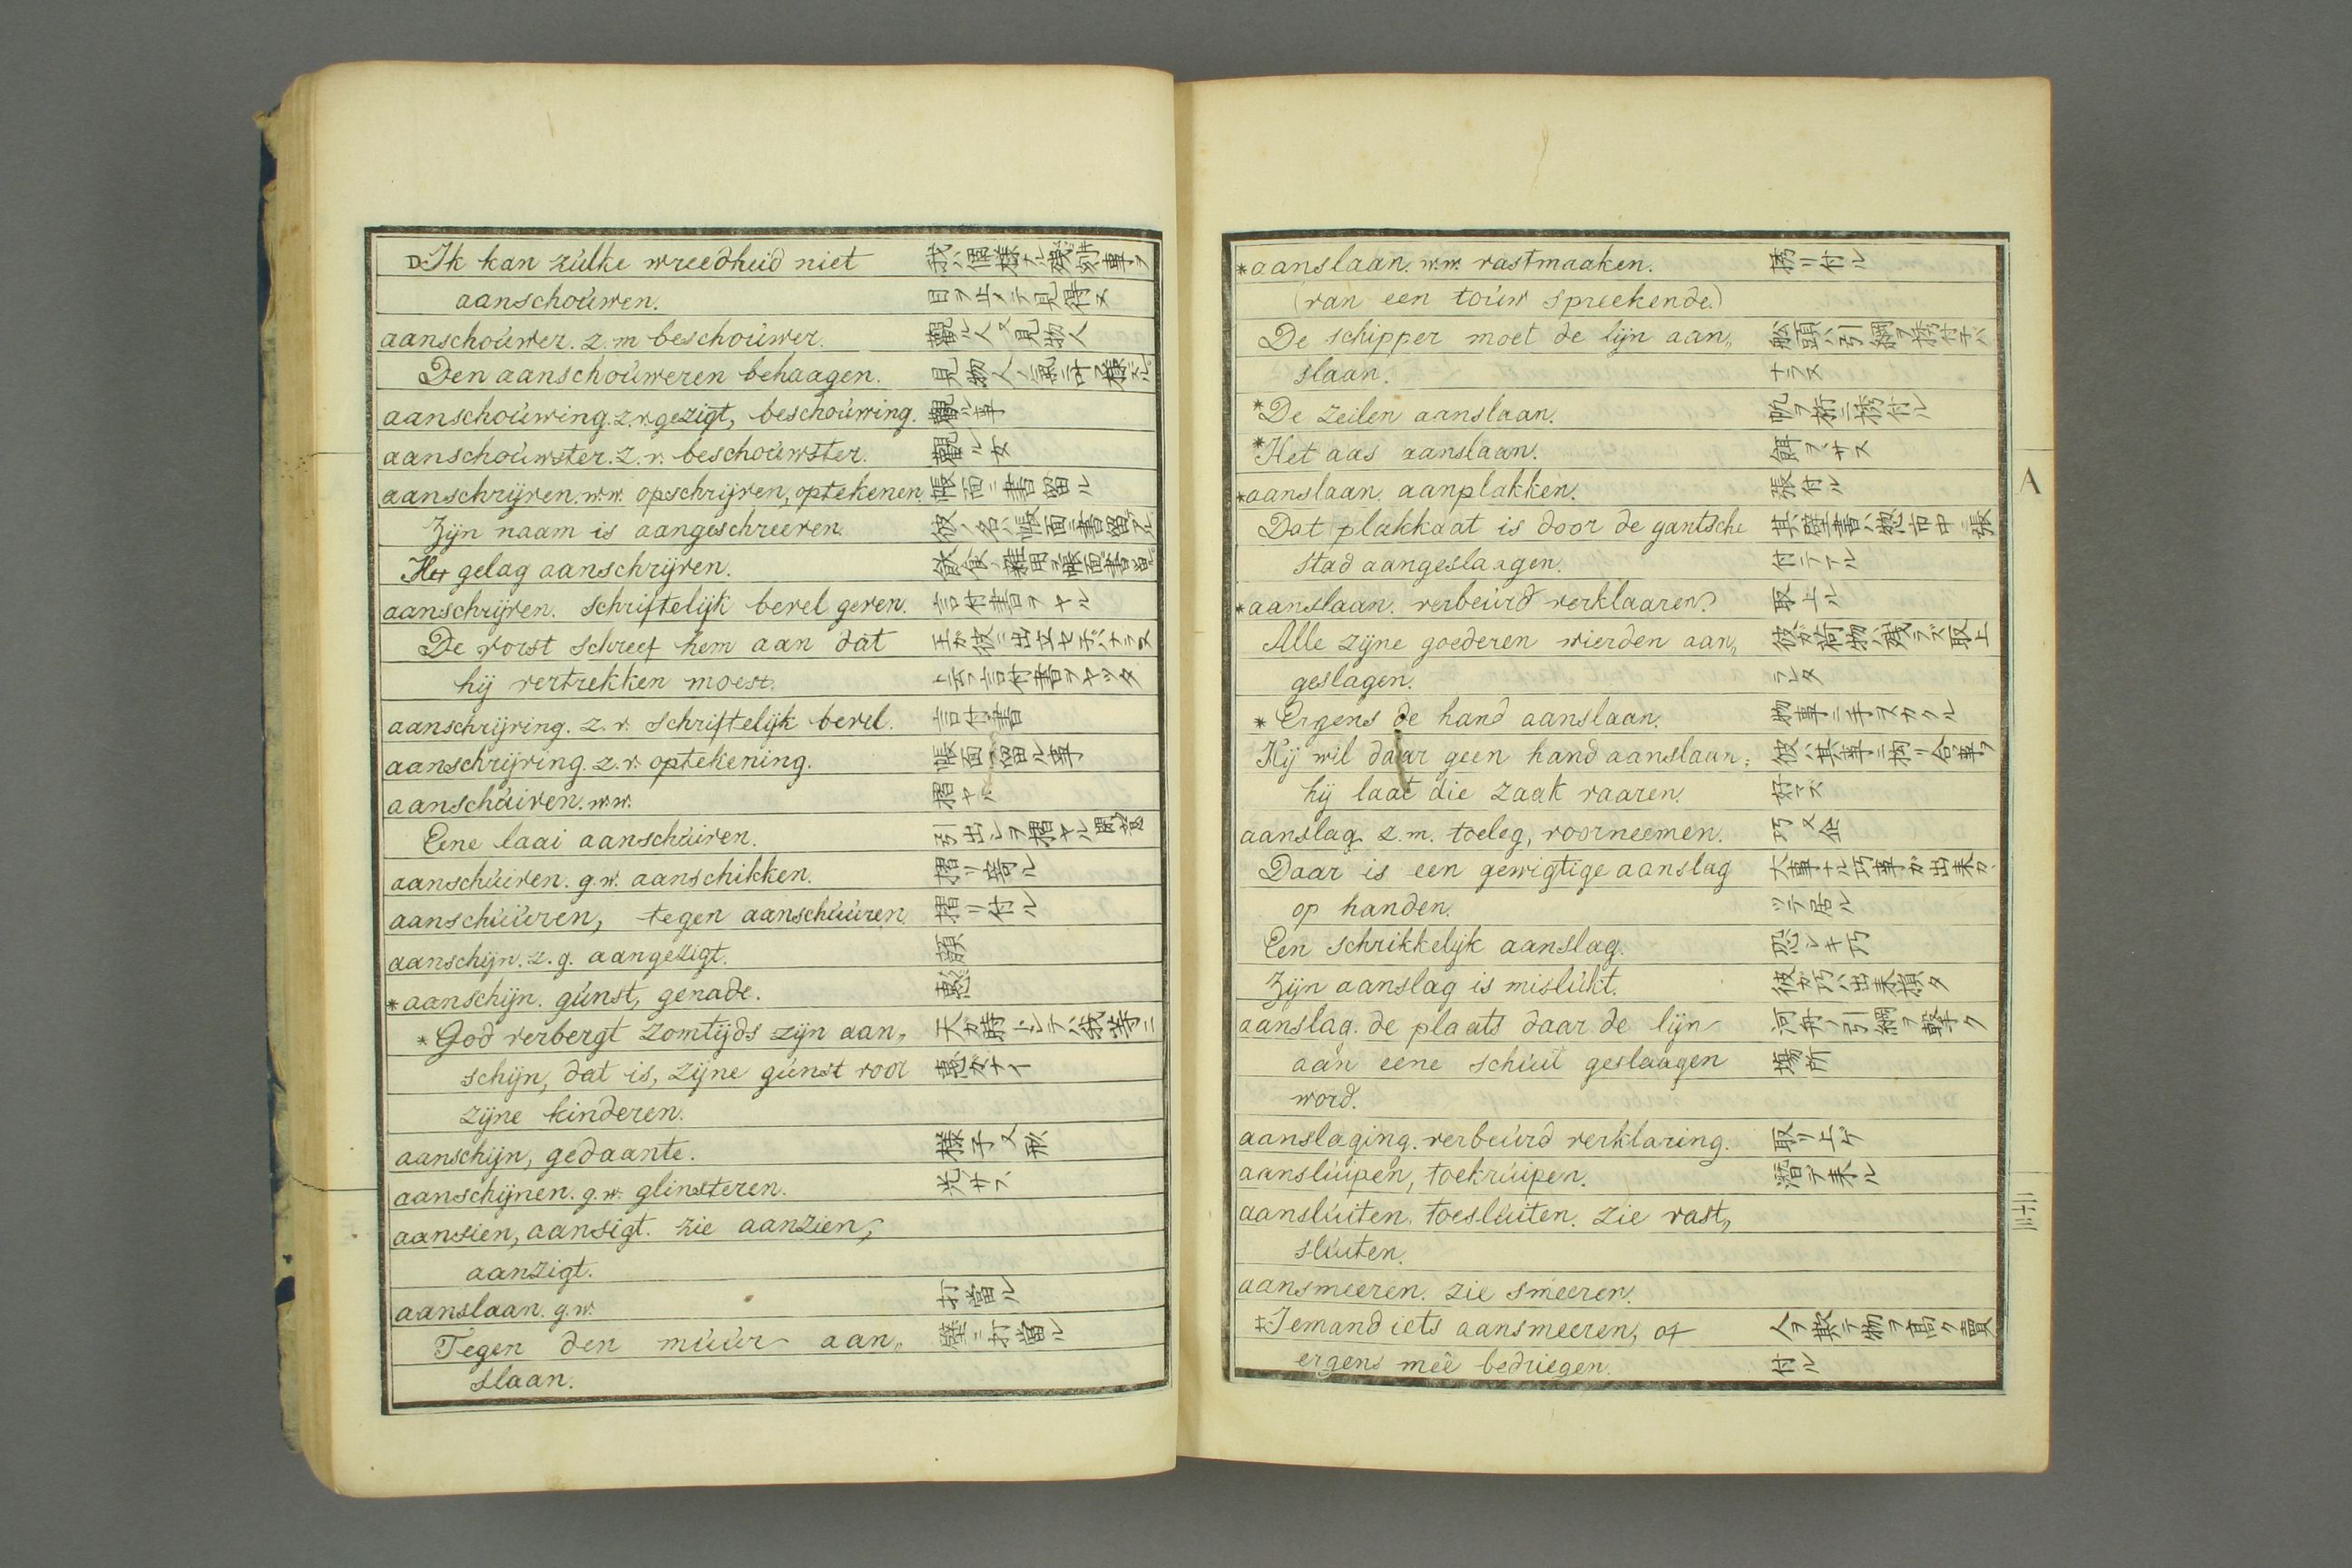 Ik kan zulke wreedheid niet 我ハ個様ナル残刻ナ事ヲ
aanschouwen. 目ヲ止メテ見得ヌ
aanschouwer. z. m beschouwer. 観ル人又見物人
Den aanschouweren behaagen. 見物人ノ氣ニ
aanschouwing. z. v. gezigt, beschouwing. 観ル事
aanschouwster. z. v. beschouwster. 観ル女
aanschrijven. w.w. opschrijven, optekenen. 帳面ニ書留ル
Zijn naam is aangeschreeven. 彼ノ名ハ帳面ニ書留テアル
Het gelag aanschrijven. 飲食ノ雑用ヲ帳面ニ書留ル
aanschrijven. schriftelijk bevel geven. 言付書ヲヤル
De vorst schreef hem aan dat 王ガ彼ニ出立セ子バナラヌ
hij vertrekken moest. ト云フ言付書ヲヤツタ
aanschrijving. z. v. schriftelijk bevel. 言付書
aanschrijving. z. v. optekening. 帳面ニ留ル事
aanschuiven. w.w. 摺ヤル
Eene laai aanschuiven. 引出シヲ摺ヤル
aanschuiven. g.w. aanschikken. 摺リ寄ル
aanschuuren, tegen aanschuuren 摺リ付ル
aanschijn. z. g. aangezigt. 顔
*aanschijn. gunst, genade. 恵
*God verbergt zomtijds zijn aan„ 天ガ時トシテハ我等ニ
schijn, dat is, zijne gunst voor 恵ガナイ
zijne kinderen.
aanschijn, gedaante. 様子又形
aanschijnen. g.w. glinsteren. 光サス
aansien, aansigt. zie aanzien,
aanzigt.
aanslaan. g.w. 打當ル
Tegen den muur aan„ 壁ニ打當ル
slaan.
*aanslaan. w.w. vastmaaken. 括リ付ル
(van een touw spreekende.)
De schipper moet de lijn aan„ 舩頭ハ引綱ヲ括付子バ
slaan. ナラヌ
*De zeilen aanslaan. 帆ヲ桁ニ括付ル
*Het aas aanslaan. 餌ヲサス
*aanslaan. aanplakken. 張付ル
Dat plakkaat is door de gantsche 其壁書ハ惣市中ニ張
stad aangeslaagen. 付テアル
*aanslaan. verbeurd verklaaren. 取上ル
Alle zijne goederen wierden aan„ 彼ガ荷物ハ残ラズ取上
geslagen. ラレタ
*Ergens de hand aanslaan. 物事ニ手ヲカクル
Hij wil daar geen hand aanslaan: 彼ハ其事ニ拘リ合事ヲ
hij laat die zaak vaaren. 好マズ
aanslag z. m. toeleg, voorneemen. 巧又企
Daar is een gewigtige aanslag 大事ナル巧事ガ出来カヽ
op handen. ツテ居ル
Een schrikkelijk aanslag. 恐シキ巧
Zijn aanslag is mislukt. 彼ガ巧ハ出来損タ
aanslag. de plaats daar de lijn 河舟ノ引綱ヲ繋ク
aan eene schuit geslaagen 場所
word.
aanslaging. verbeurd verklaring. 取リ上ケ
aansluipen, toekruipen. 潜テ来ル
aansluiten. toesluiten. zie vast„
sluiten.
aansmeeren. zie smeeren.
‡Iemand iets aansmeeren, of 人ヲ欺テ物ヲ高ク賣
ergens meê bedriegen. 付ル
A
二十三